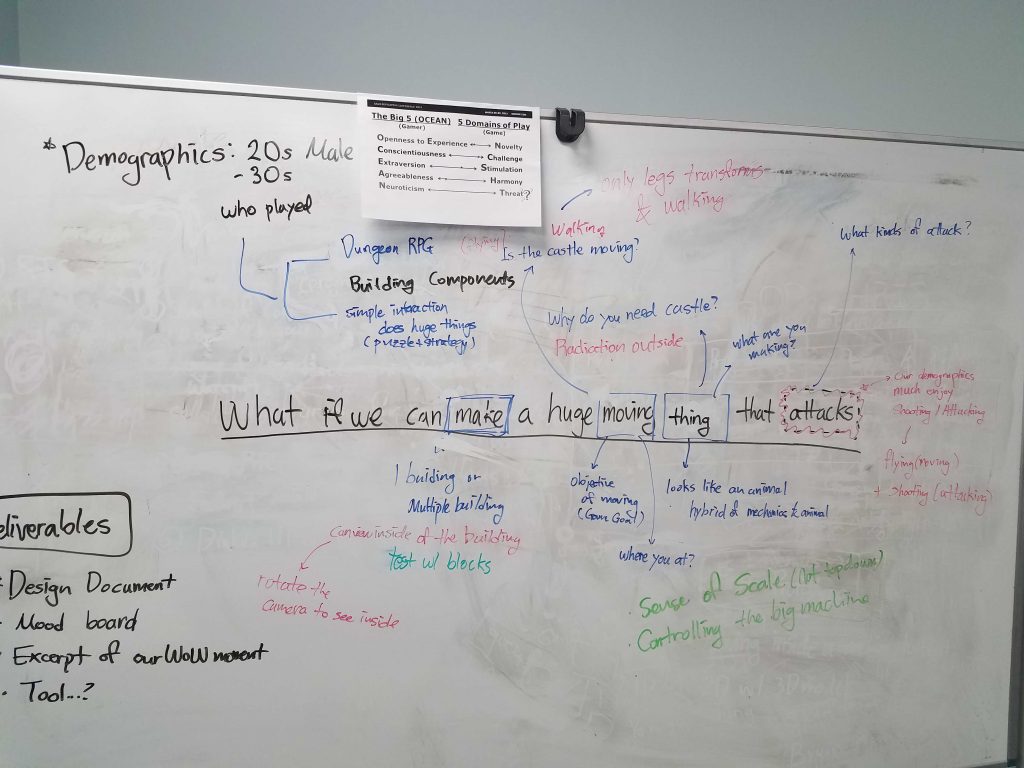 The Big 5 (OCEAN) 5 Domains of Play
(Gamer) (Game)
Openness to Experience Novelty
Conscientiousness Challenge
Extraversion Stimulation
Agreeableness Harmony
Neuroticism Threat?
* Demographics: 20s Male
- 30s
who played
Dungeon RPG
Building Components
simple interaction
does huge things
(puzzle+strategy)
only legs transforms
& walking
Walking
Is the castle moving?
What kinds of attack?
Why do you need castle?
Radiation outside
what are you
making?
Our demographics
much enjoy
Shooting / Attacking
flying (moving)
+ shooting (attacking)
What if we can make a huge moving thing that attacks
1 building or
Multiple building
inside of the building
test w/ blocks
rotate the
camera to see inside
objective
of moving
(Game Goal)
looks like an animal
hybrid of mechanics & animal
where you at?
· Sense of Scale (Not topdown)
· Controlling the big machine
eliverables
Design Document
Mood board
Excerpt of our WoW moment
Tool...?